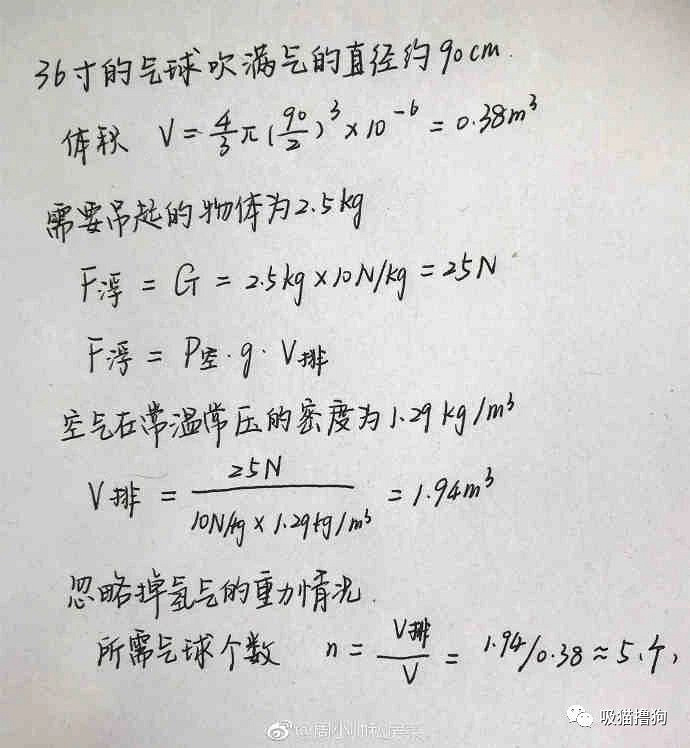 36寸的气球吹满气的直径约90cm.
体积 V=4/3π(90/2)³×10⁻⁶=0.38m³
需要吊起的物体为2.5kg
F浮=G=2.5kg×10N/kg=25N
F浮=P空·g·V排
空气在常温常压的密度为1.29kg/m³
V排=25N/10N/kg×1.29kg/m³=1.94m³
忽略掉氢气的重力情况.
所需气球个数 n=V排/V=1.94/0.38≈5个,
吸猫撸狗